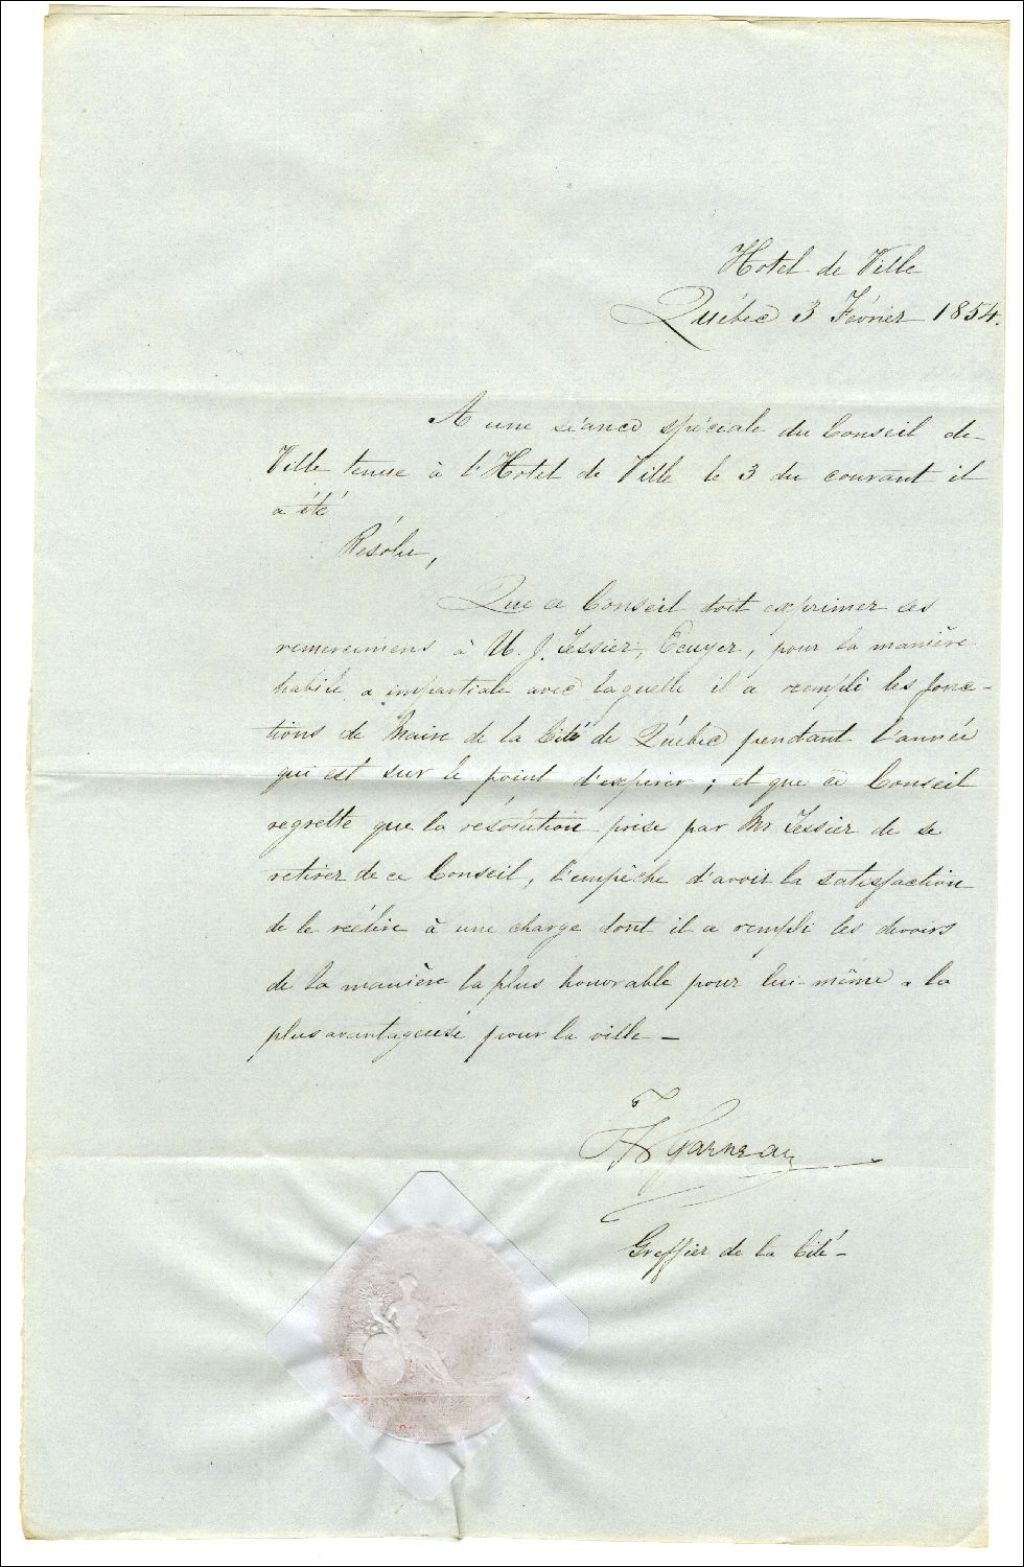 Hotel de Ville
Québec 3 Février 1854.
A une séance spéciale du Conseil de
Ville tenue à l'Hotel de Ville le 3 du courant il
a été
Résolu,
Que ce Conseil doit exprimer ses
remercimens à U. J. Tessier, Ecuyer, pour la manière
habile & impartiale avec laquelle il a rempli les fonc-
tions de Maire de la Cité de Québec pendant l'année
qui est sur le point d'expirer ; et que ce Conseil
regrette que la résolution prise par Mr Tessier de se
retirer de ce Conseil, l'empêche d'avoir la satisfaction
de le réélire à une charge dont il a rempli les devoirs
de la manière la plus honorable pour lui-même & la
plus avantageuse pour la ville —
FX Garneau
Greffier de la Cité -